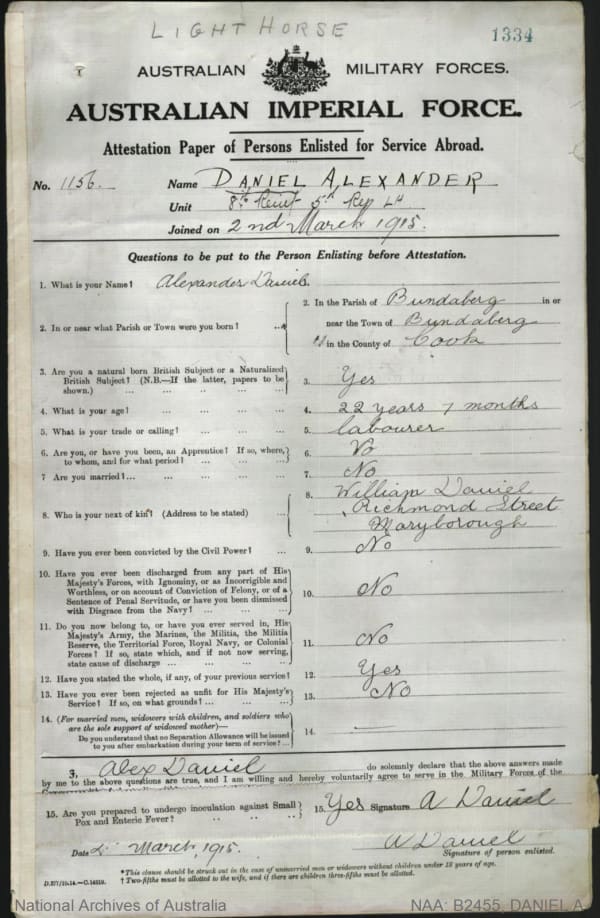 LIGHT HORSE
1334
AUSTRALIAN MILITARY FORCES.
AUSTRALIAN IMPERIAL FORCE.
Attestation Paper of Persons Enlisted for Service Abroad.
No. 1156. Name DANIEL ALEXANDER
Unit 8th Reinf 5th Reg LH
Joined on 2nd March 1915.
Questions to be put to the Person Enlisting before Attestation.
1. What is your Name? Alexander Daniel
2. In or near what Parish or Town were you born? ... 2. In the Parish of Bundaberg in or
near the Town of Bundaberg
in the County of Cook
3. Are you a natural born British Subject or a Naturalized
British Subject? (N.B.—If the latter, papers to be
shown.) ... 3. Yes
4. What is your age? ... 4. 22 years 7 months
5. What is your trade or calling? ... 5. labourer
6. Are you, or have you been, an Apprentice? If so, where,
to whom, and for what period? ... 6. No
7. Are you married? ... 7. No
8. Who is your next of kin? (Address to be stated) ... 8. William Daniel
Richmond Street
Maryborough
9. Have you ever been convicted by the Civil Power? ... 9. No
10. Have you ever been discharged from any part of His
Majesty's Forces, with Ignominy, or as Incorrigible and
Worthless, or on account of Conviction of Felony, or of a
Sentence of Penal Servitude, or have you been dismissed
with Disgrace from the Navy? ... 10. No
11. Do you now belong to, or have you ever served in, His
Majesty's Army, the Marines, the Militia, the Militia
Reserve, the Territorial Force, Royal Navy, or Colonial
Forces? If so, state which, and if not now serving,
state cause of discharge ... 11. No
12. Have you stated the whole, if any, of your previous service? 12. Yes
13. Have you ever been rejected as unfit for His Majesty's
Service? If so, on what grounds? ... 13. No
14. (For married men, widowers with children, and soldiers who
are the sole support of widowed mother)—
Do you understand that no Separation Allowance will be issued
to you after embarkation during your term of service? ... 14. —
3, Alex Daniel do solemnly declare that the above answers made
by me to the above questions are true, and I am willing and hereby voluntarily agree to serve in the Military Forces of the
15. Are you prepared to undergo inoculation against Small
Pox and Enteric Fever? 15. Yes Signature A Daniel
Date 2. March, 1915. A Daniel
Signature of person enlisted.
*This clause should be struck out in the case of unmarried men or widowers without children under 18 years of age.
† Two-fifths must be allotted to the wife, and if there are children three-fifths must be allotted.
D.277/10.14.—C.14519.
National Archives of Australia NAA: B2455, DANIEL A